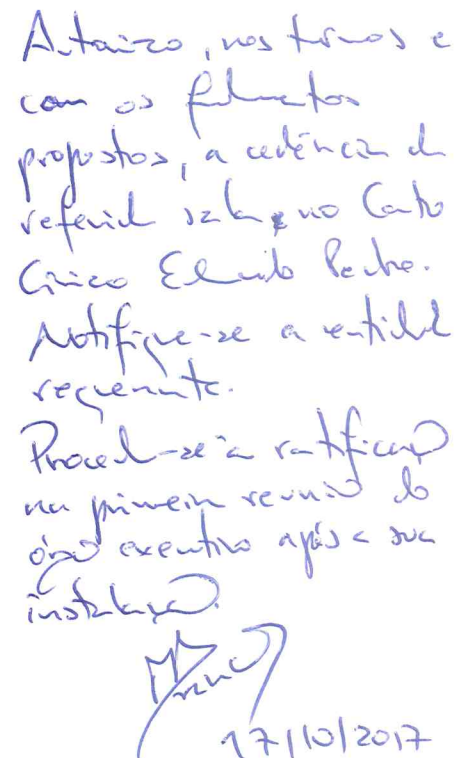 Autorizo, nos termos e
com os fundamentos
propostos, a cedência da
referida sala, no Centro
Cívico Edmundo Pedro.
Notifique-se a entidade
requerente.
Proceda-se à ratificação
na primeira reunião do
órgão executivo após a sua
instalação.
17/10/2017